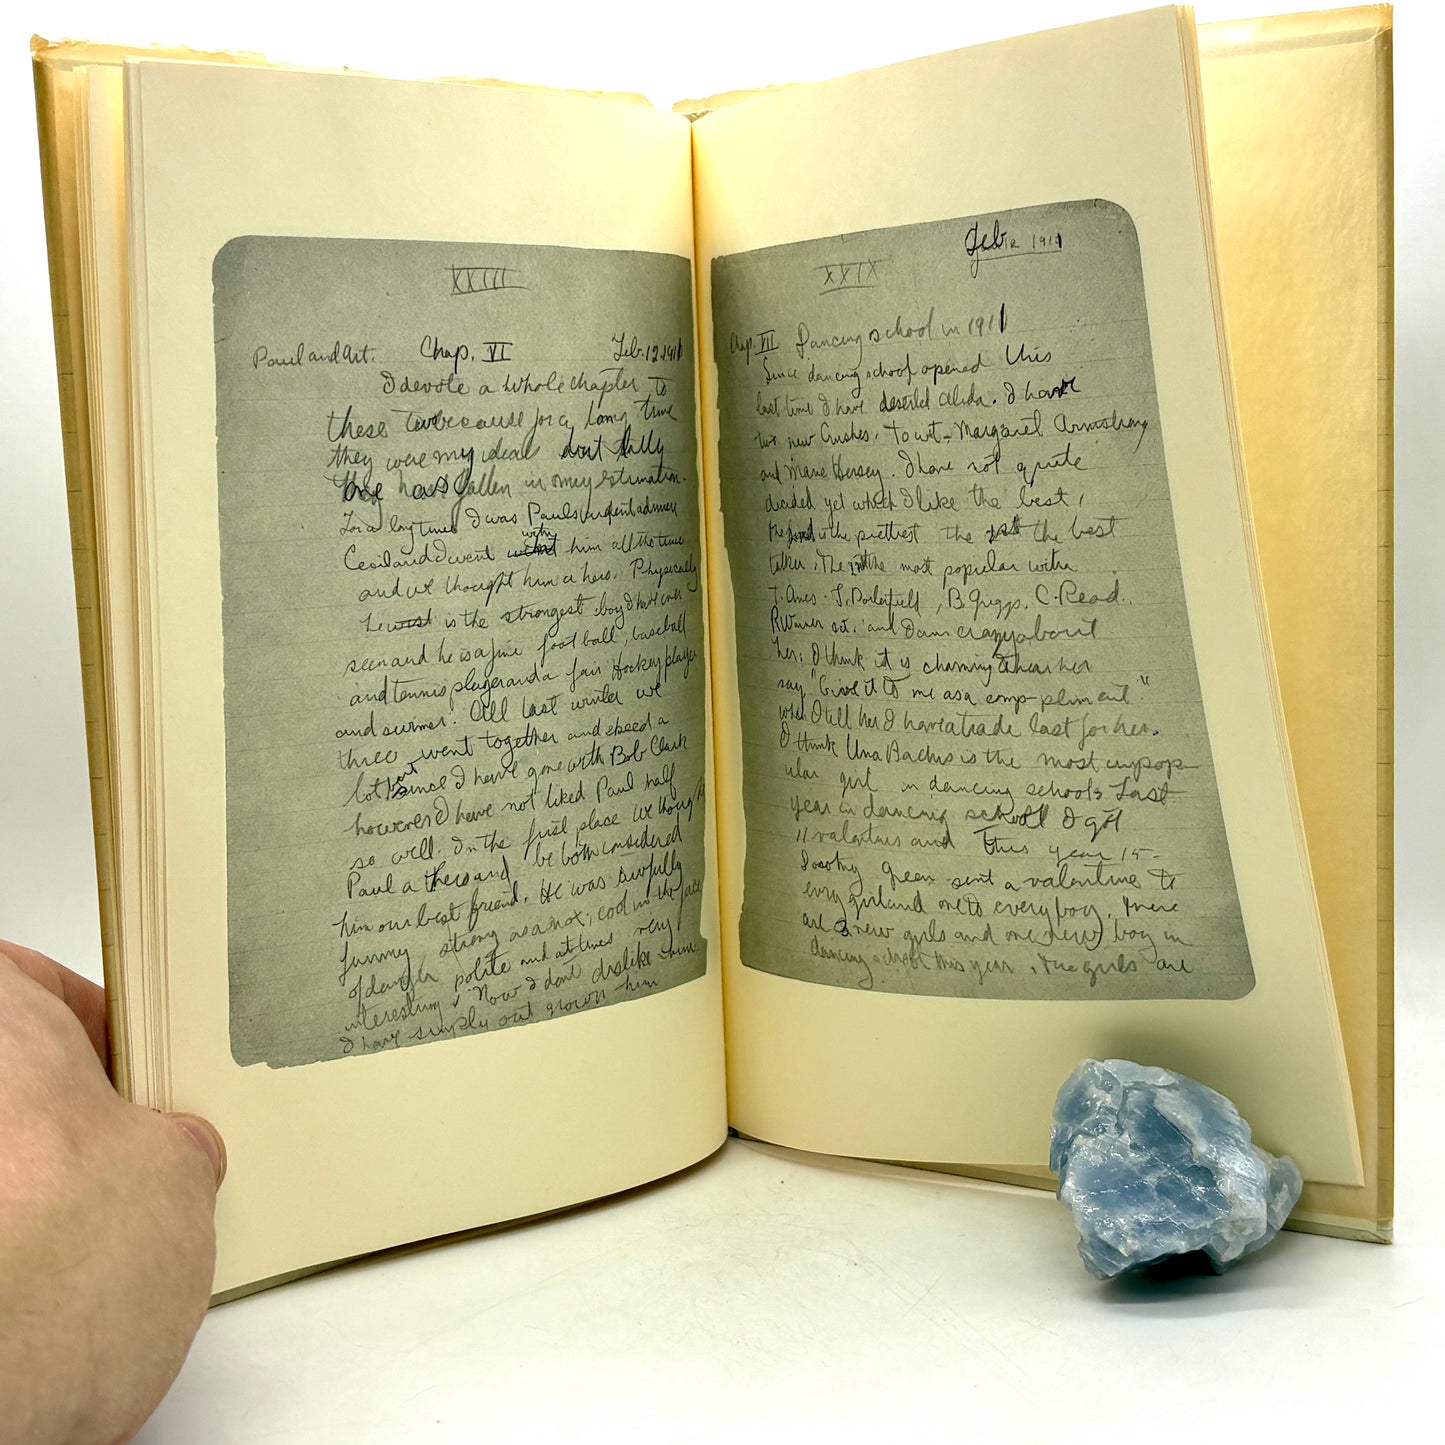 XXIII
Paul and Art. Chap. VI Feb. 12 1911
I devote a whole chapter to
these two because for a long time
they were my ideals but lally
one has fallen in my estimation.
For a long time I was Pauls ardent admirer
Cecil and I went with him all the time
and we thought him a hero. Physically
he is the strongest boy I have ever
seen and he is a fine foot ball, baseball
and tennis player and a fair Hockey player
and swimer. All last winter we
three went together and
lot but since I have gone with Bob Clark
however I have not liked Paul half
so well. In the first place we thought
Paul a be both considered
him our best friend. He was awfully
funny, strong as an ox, cool in the face
of danger polite and at times very
interesting. Now I dont dislike him
I have simply out grown him
XXIX
Feb 12 1911
Chap. VII Dancing school in 1911
Since dancing school opened this
last time I have deserted Alida. I have
two new Crushes. To wit - Margaret Armstrong
and Marie Hersey. I have not quite
decided yet which I like the best,
the 2nd is the prettiest the 1st the best
talker. The the most popular with
T. Ames. L. Porterfield, B. Griggs, C. Read,
R. Warner and I am crazy about
her: I think it is charming to hear her
say "Give it to me as a comp-pliment"
when I tell her I have a trade last for her.
I think Una Bachus is the most unpop
ular girl in dancing school. Last
year in dancing school I got
11 valentines and this year 15-
Dorothy Green sent a valentine to
every girl and one to every boy. There
are 3 new girls and one new boy in
dancing school this year, the girls are